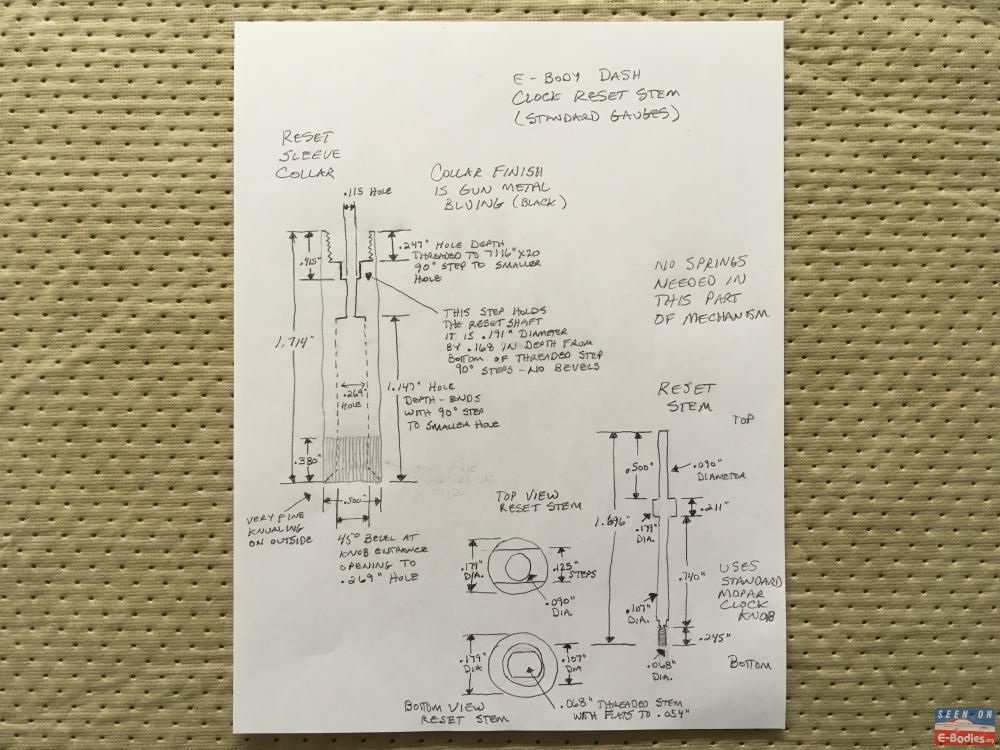 E-BODY DASH
CLOCK RESET STEM
(STANDARD GAUGES)
RESET
SLEEVE
COLLAR
COLLAR FINISH
IS GUN METAL
BLUING (BLACK)
.115 HOLE
.415"
.247" HOLE DEPTH
THREADED TO 7/16" X 20
90° STEP TO SMALLER
HOLE
NO SPRINGS
NEEDED IN
THIS PART
OF MECHANISM
THIS STEP HOLDS
THE RESET SHAFT
IT IS .191" DIAMETER
BY .168 IN DEPTH FROM
BOTTOM OF THREADED STEP
90° STEPS - NO BEVELS
1.714"
.269"
HOLE
1.147" HOLE
DEPTH - ENDS
WITH 90° STEP
TO SMALLER HOLE
.380"
.500"
VERY FINE
KNURLING
ON OUTSIDE
45° BEVEL AT
KNOB ENTRANCE
OPENING TO
.269" HOLE
RESET
STEM
TOP
.500"
.090"
DIAMETER
.211"
.179"
DIA.
1.696"
.740"
.107"
DIA.
.245"
.068"
DIA.
USES
STANDARD
MOPAR
CLOCK
KNOB
BOTTOM
TOP VIEW
RESET STEM
.179"
DIA.
.125"
STEPS
.090"
DIA.
.179"
DIA
.107"
DIA
.068" THREADED STEM
WITH FLATS TO .054"
BOTTOM VIEW
RESET STEM
SEEN ON
E-Bodies.org